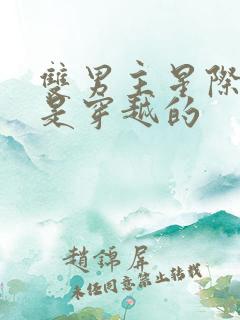 雙男主星際
是穿越的
趙錦屏
未经同意禁止转载